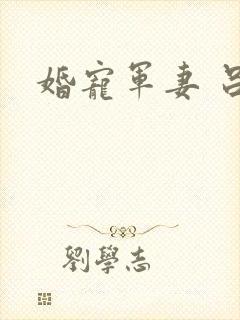 婚寵軍妻 呂
劉學志